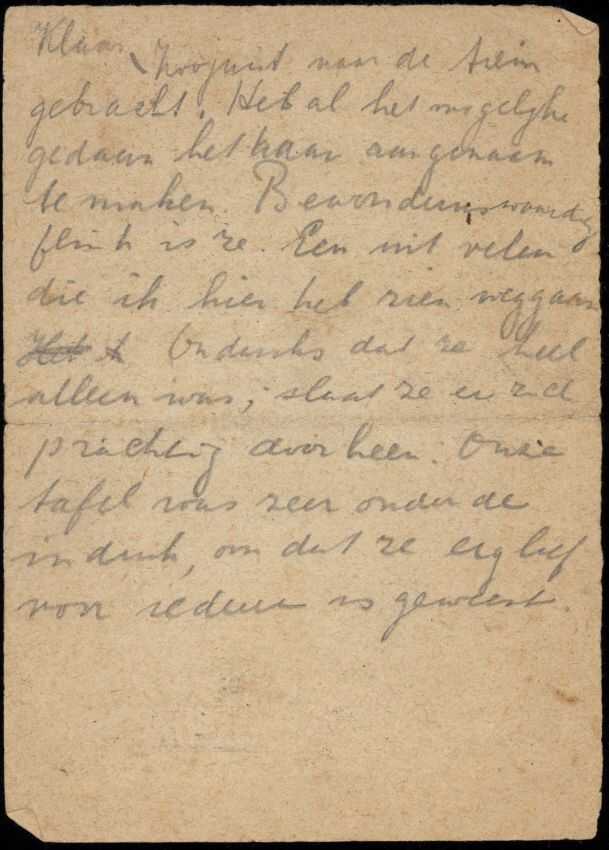 Klaar, zoojuist naar de trein
gebracht. Heb al het mogelijke
gedaan het haar aangenaam
te maken. Bewonderingswaardig
flink is ze. Een uit velen
die ik hier heb zien weggaan
Het Ondanks dat ze heel
alleen was, slaat ze er zich
prachtig doorheen. Onze
tafel was zeer onder de
indruk, om dat ze erg lief
voor iedereen is geweest.